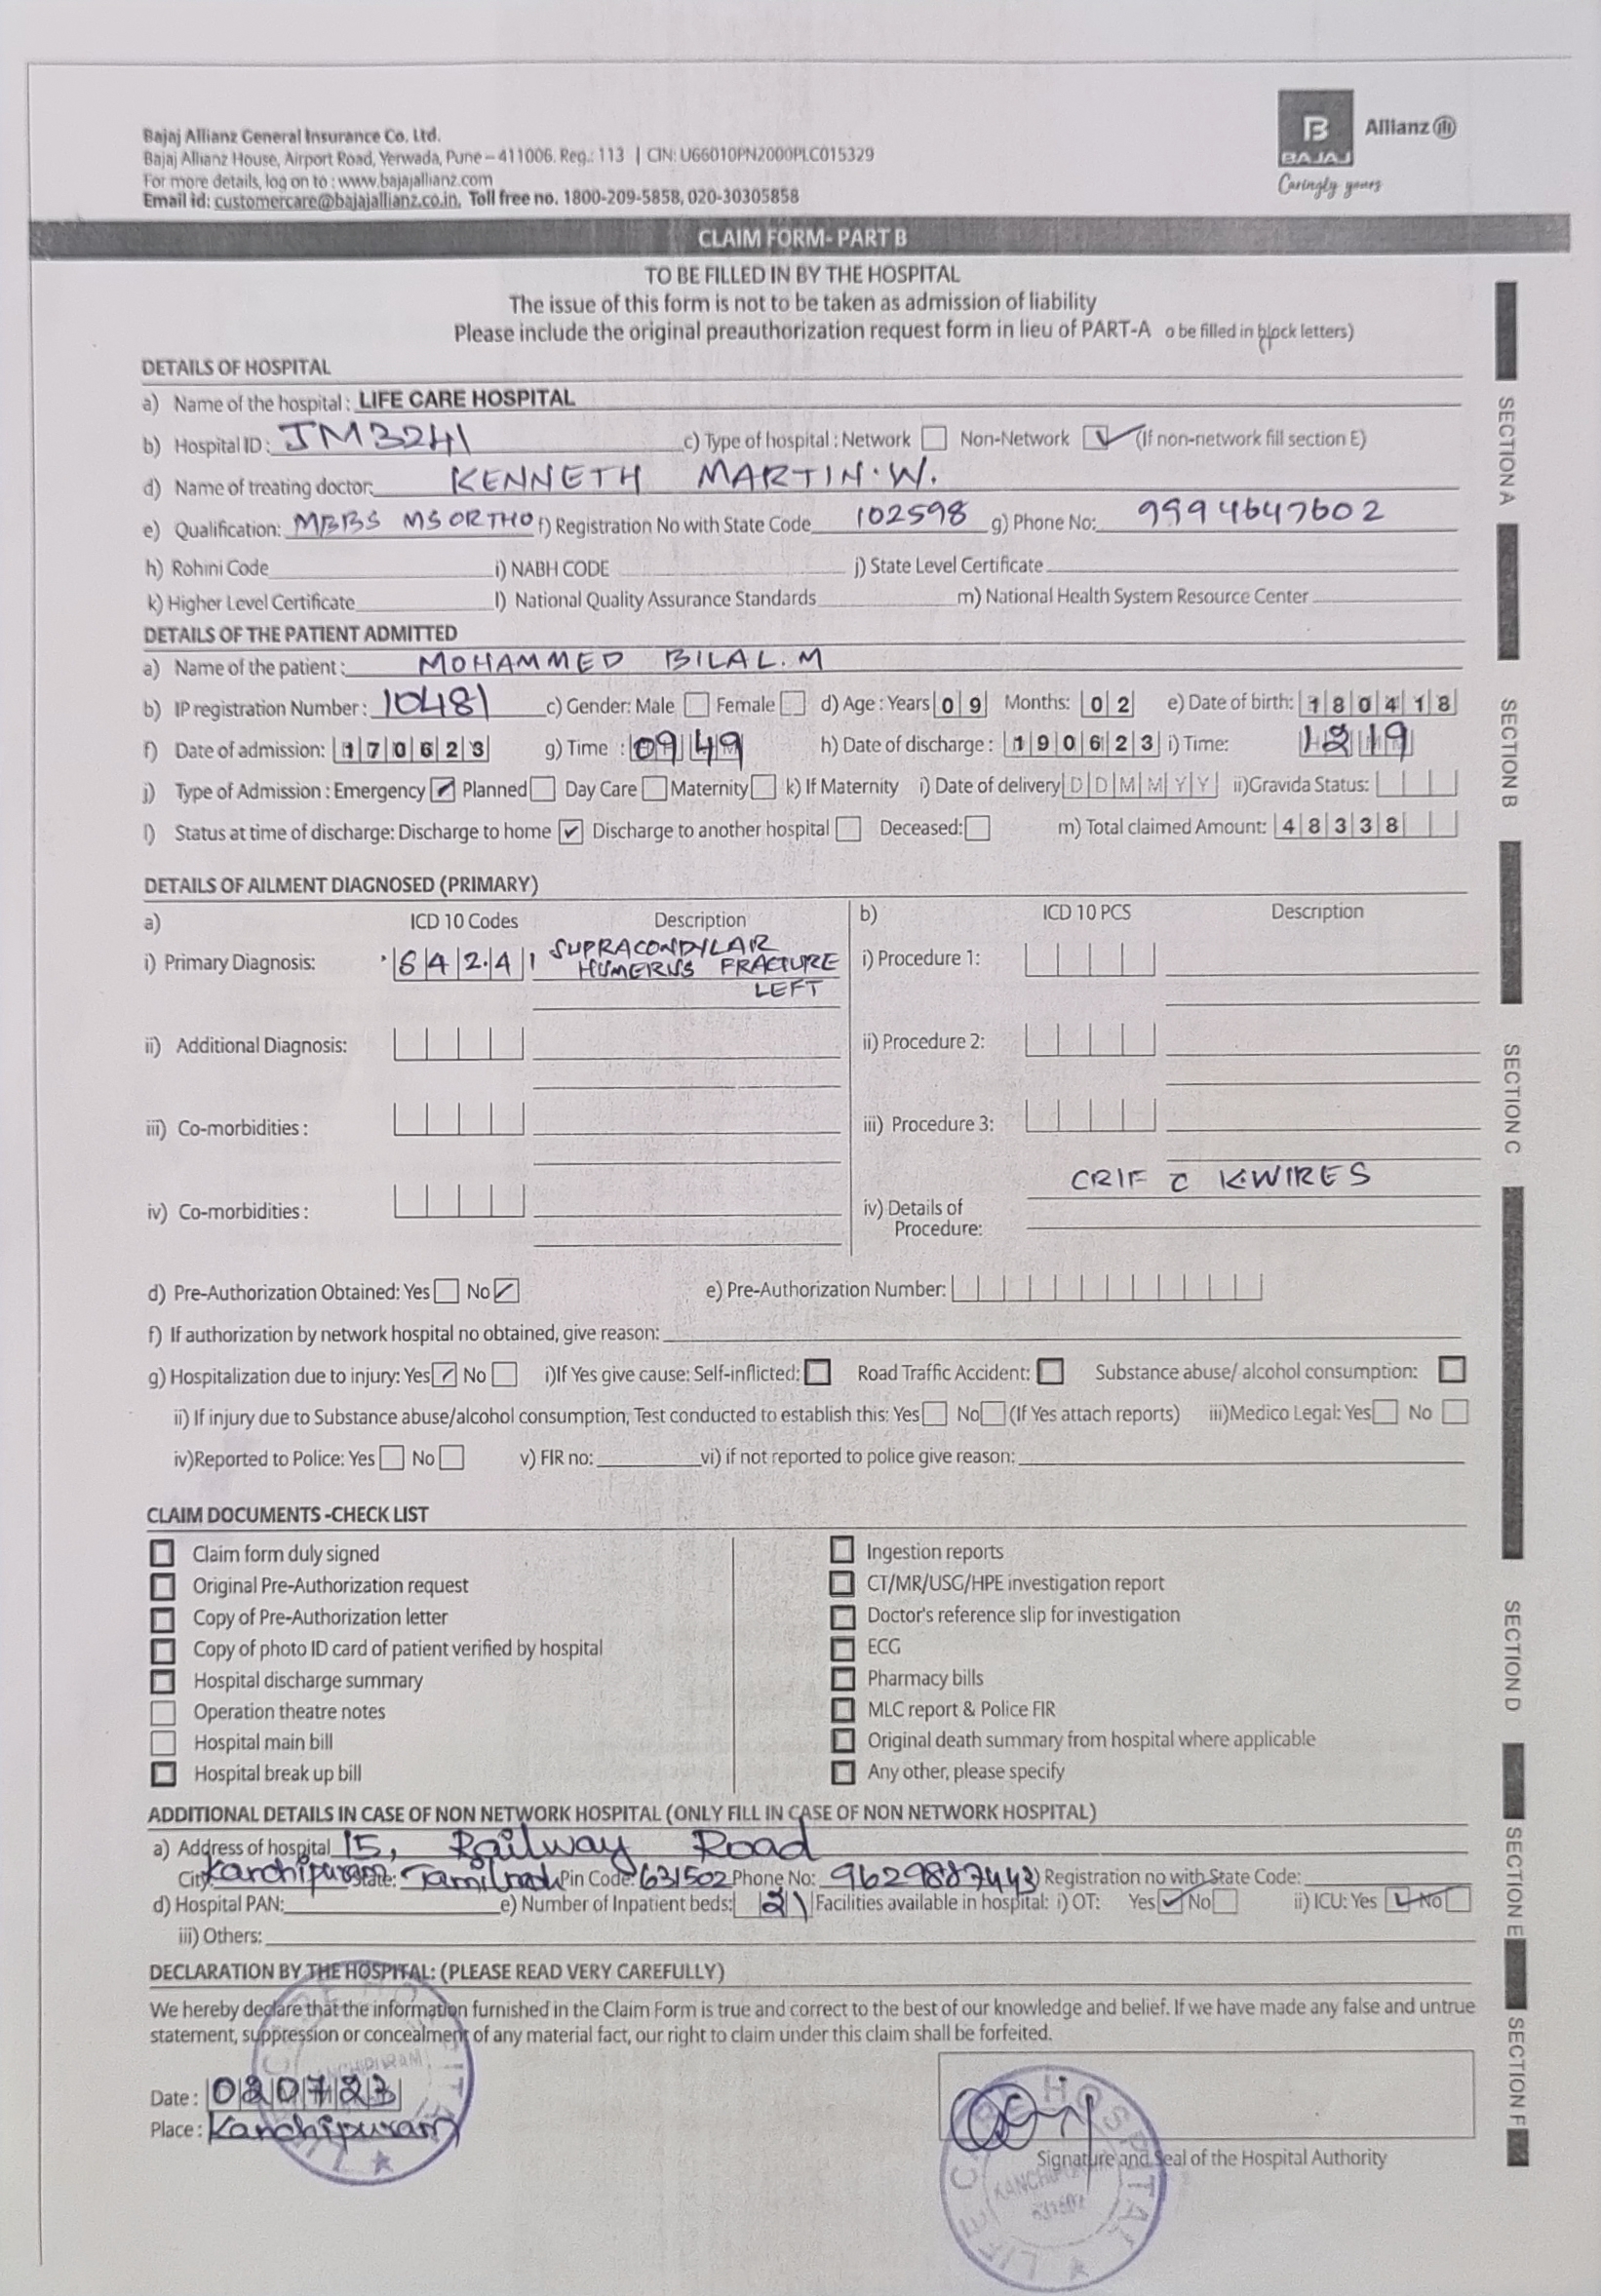 Bajaj Allianz General Insurance Co. Ltd.
Bajaj Allianz House, Airport Road, Yerwada, Pune – 411006. Reg.: 113 | CIN: U66010PN2000PLC015329
For more details, log on to : www.bajajallianz.com
Email id: customercare@bajajallianz.co.in, Toll free no. 1800-209-5858, 020-30305858
B BAJAJ Allianz
Caringly yours
CLAIM FORM- PART B
TO BE FILLED IN BY THE HOSPITAL
The issue of this form is not to be taken as admission of liability
Please include the original preauthorization request form in lieu of PART-A o be filled in block letters)
DETAILS OF HOSPITAL
a) Name of the hospital : LIFE CARE HOSPITAL
b) Hospital ID : JM3241 c) Type of hospital : Network Non-Network (If non-network fill section E)
d) Name of treating doctor: KENNETH MARTIN.W.
e) Qualification: MBBS MS ORTHO f) Registration No with State Code 102598 g) Phone No: 9994647602
h) Rohini Code i) NABH CODE j) State Level Certificate
k) Higher Level Certificate l) National Quality Assurance Standards m) National Health System Resource Center
SECTION A
DETAILS OF THE PATIENT ADMITTED
a) Name of the patient : MOHAMMED BILAL.M
b) IP registration Number : 10481 c) Gender: Male Female d) Age : Years 09 Months: 02 e) Date of birth: 180418
f) Date of admission: 170623 g) Time : 09 49 h) Date of discharge : 190623 i) Time: 12 19
j) Type of Admission : Emergency Planned Day Care Maternity k) If Maternity i) Date of delivery D D M M Y Y ii)Gravida Status:
l) Status at time of discharge: Discharge to home Discharge to another hospital Deceased: m) Total claimed Amount: 48338
SECTION B
DETAILS OF AILMENT DIAGNOSED (PRIMARY)
a) ICD 10 Codes Description b) ICD 10 PCS Description
i) Primary Diagnosis: S42.41 SUPRACONDYLAR HUMERUS FRACTURE LEFT i) Procedure 1:
ii) Additional Diagnosis: ii) Procedure 2:
iii) Co-morbidities : iii) Procedure 3:
iv) Co-morbidities : iv) Details of Procedure: CRIF C K-WIRES
d) Pre-Authorization Obtained: Yes No e) Pre-Authorization Number:
f) If authorization by network hospital no obtained, give reason:
g) Hospitalization due to injury: Yes No i)If Yes give cause: Self-inflicted: Road Traffic Accident: Substance abuse/ alcohol consumption:
ii) If injury due to Substance abuse/alcohol consumption, Test conducted to establish this: Yes No (If Yes attach reports) iii)Medico Legal: Yes No
iv)Reported to Police: Yes No v) FIR no: vi) if not reported to police give reason:
SECTION C
CLAIM DOCUMENTS -CHECK LIST
Claim form duly signed
Original Pre-Authorization request
Copy of Pre-Authorization letter
Copy of photo ID card of patient verified by hospital
Hospital discharge summary
Operation theatre notes
Hospital main bill
Hospital break up bill
Ingestion reports
CT/MR/USG/HPE investigation report
Doctor's reference slip for investigation
ECG
Pharmacy bills
MLC report & Police FIR
Original death summary from hospital where applicable
Any other, please specify
SECTION D
ADDITIONAL DETAILS IN CASE OF NON NETWORK HOSPITAL (ONLY FILL IN CASE OF NON NETWORK HOSPITAL)
a) Address of hospital 15, Railway Road
City: Kanchipuram State: Tamilnadu Pin Code: 631502 Phone No: 9629887443 Registration no with State Code:
d) Hospital PAN: e) Number of Inpatient beds: 21 Facilities available in hospital: i) OT: Yes No ii) ICU: Yes No
iii) Others:
SECTION E
DECLARATION BY THE HOSPITAL: (PLEASE READ VERY CAREFULLY)
We hereby declare that the information furnished in the Claim Form is true and correct to the best of our knowledge and belief. If we have made any false and untrue
statement, suppression or concealment of any material fact, our right to claim under this claim shall be forfeited.
Date : 020723
Place : Kanchipuram
Signature and Seal of the Hospital Authority
LIFE CARE HOSPITAL
KANCHIPURAM
SECTION F